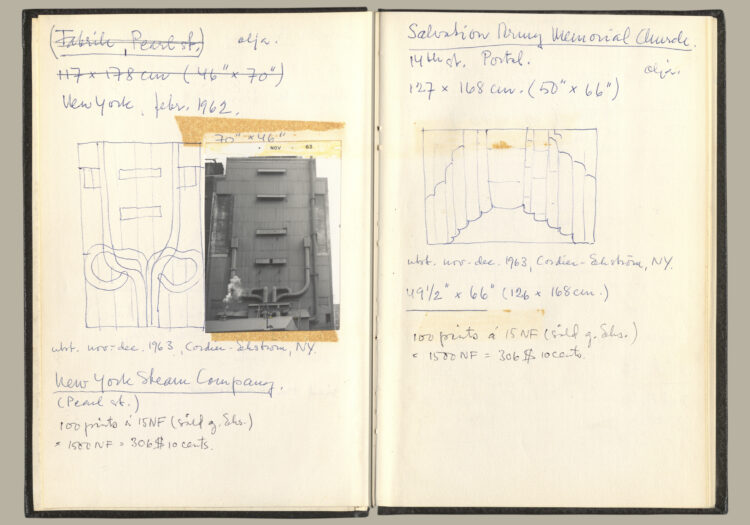 (Fabrik, Pearl st.) olja.
117 x 178 cm (46" x 70")
New York, febr. 1962.
70" x 46"
• NOV • 63
utst. nov-dec. 1963, Cordier-Ekström, NY.
New York Steam Company.
(Pearl st.)
100 points à 15NF (såld g. Eks.)
= 1500 NF = 306 $ 10 cents.
Salvation Army Memorial Church.
14th st. Portal. olja.
127 x 168 cm. (50" x 66")
utst. nov-dec. 1963, Cordier-Ekström, NY.
49 1/2" x 66" (126 x 168 cm.)
100 points à 15 NF (såld g. Eks.)
= 1500 NF = 306 $ 10 cents.